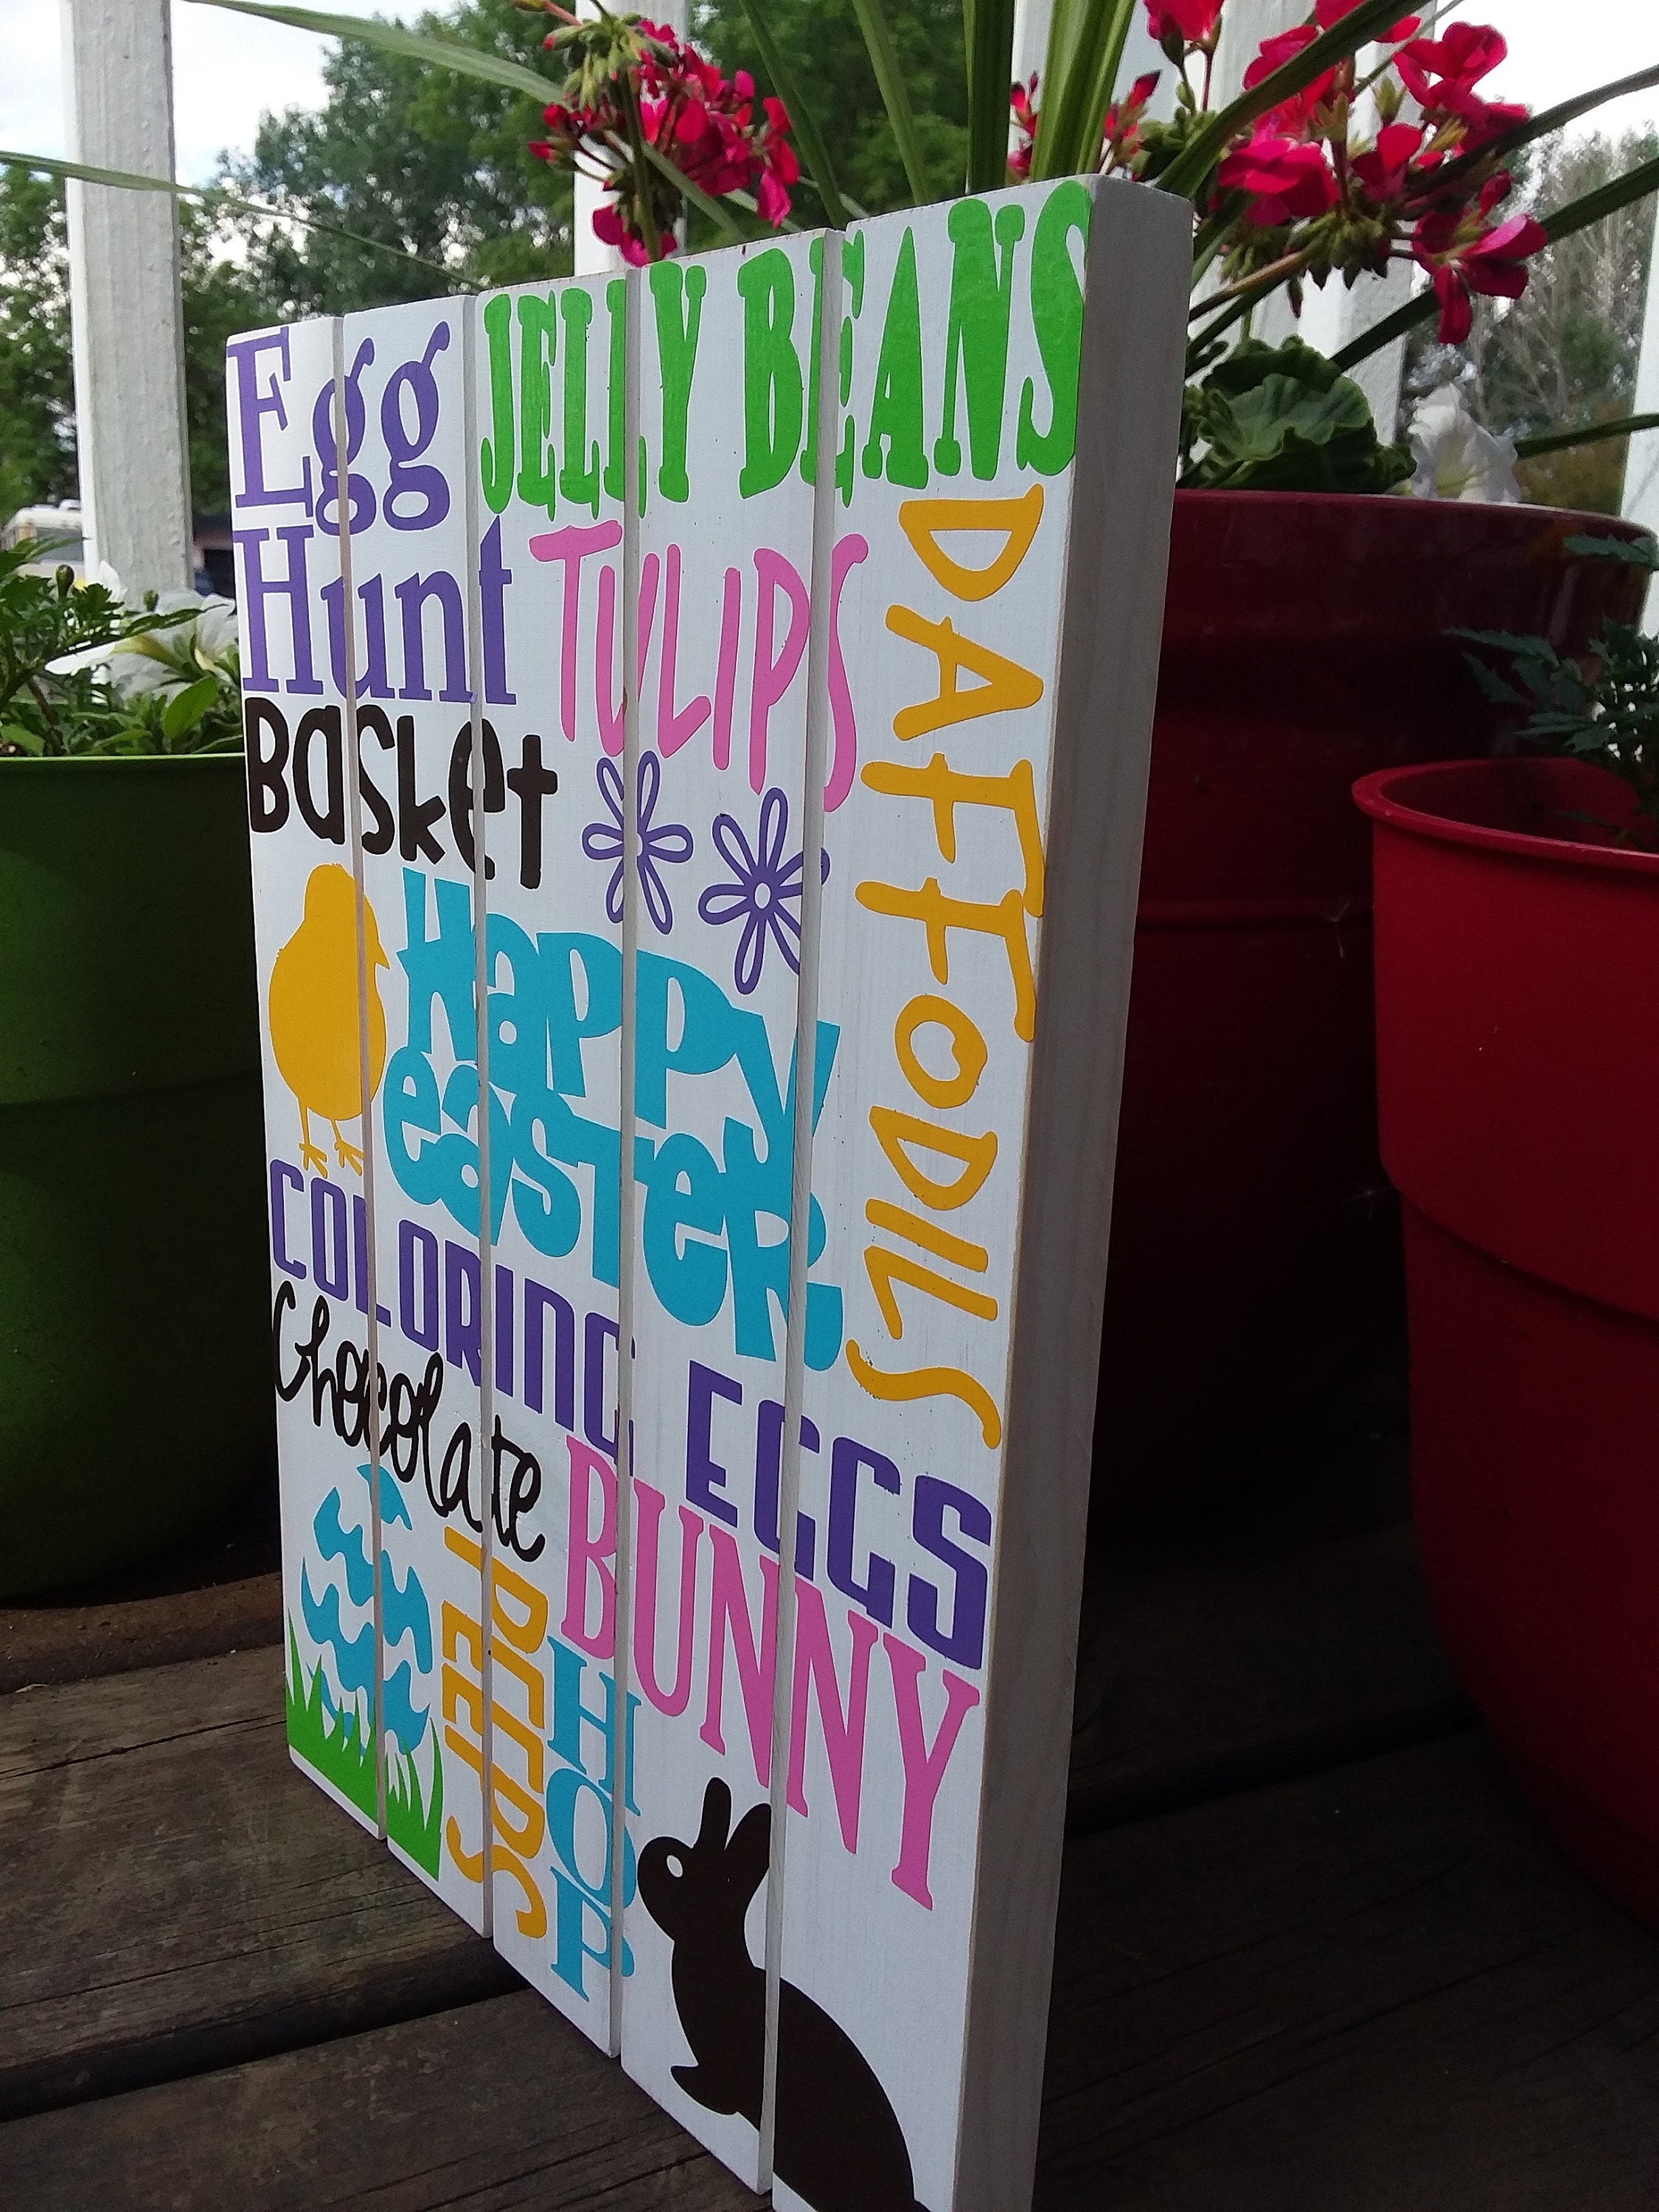 Egg
Hunt
JELLY BEANS
TULIPS
DAFFODILS
Basket
Happy
easTeR
COLORING EGGS
Chocolate
BUNNY
PEEPS
HOP